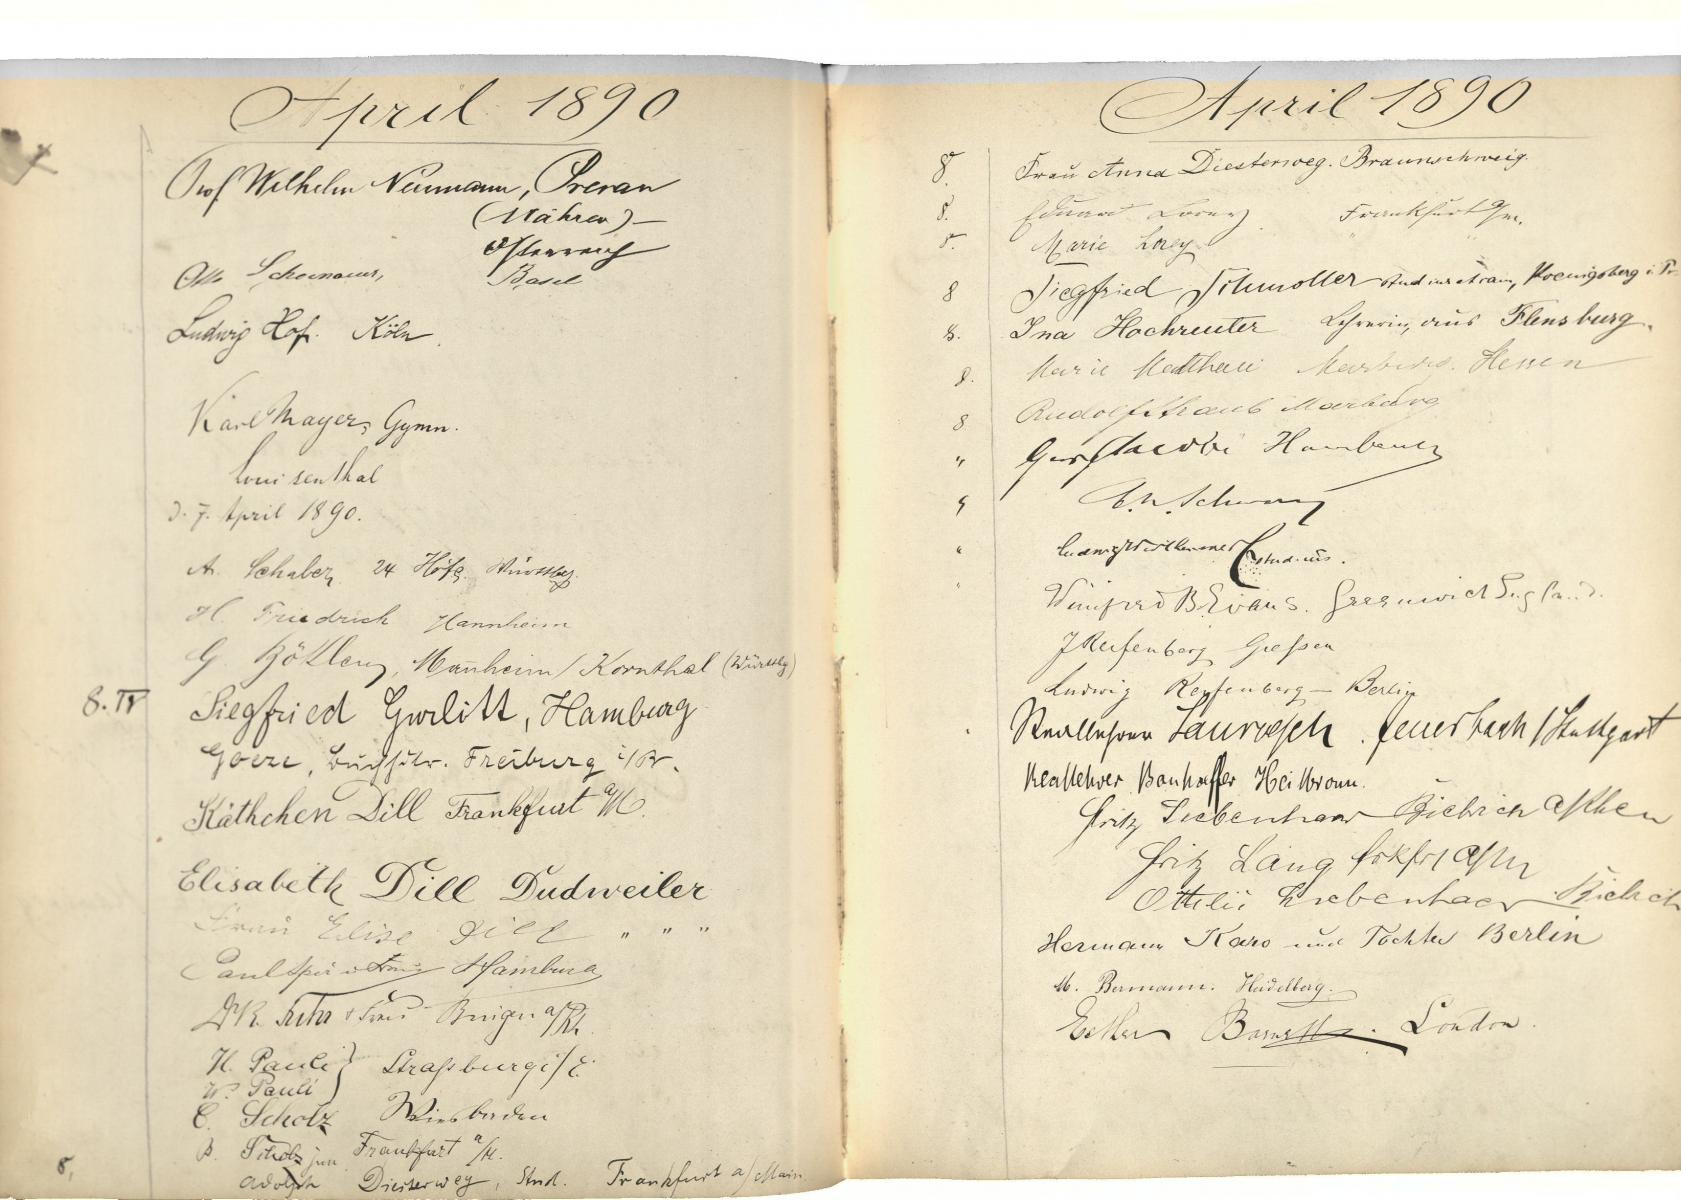 April 1890
Prof Wilhelm Neumann, Prerau
(Mähren) –
Österreich
Otto Basel
Ludwig Hof. Köln.
Karl Mayer, Gymn.
Louisenthal
d. 7. April 1890.
A. Schaber, Württbg.
H. Friedrich Mannheim
G. Mannheim / Kornthal (Württbg)
8. IV Siegfried Gurlitt, Hamburg
Freiburg i/Br.
Käthchen Dill Frankfurt a/M.
Elisabeth Dill Dudweiler
Frau Elise Dill " " "
Paul Hamburg
Dr R. Fuhr & Frau Bingen a/Rh.
H. Pauli } Straßburg i/E.
W. Pauli
C. Scholz Wiesbaden
B. Scholz jun Frankfurt a/M.
8. Adolph Diesterweg, Stud. Frankfurt a/Main
April 1890
8. Frau Anna Diesterweg. Braunschweig.
8. Eduard Lorey Frankfurt a/m.
8. Marie Lorey " "
8 Siegfried Schmoller Koenigsberg i. Pr.
8. Ina Hochreuter Lehrerin, aus Flensburg.
8. Marie Matthaei Marburg. Hessen
8 Rudolf Straub Marburg
" Jacobi Hamburg
"
" Ludwig stud.
" Winifred B Evans. Greenwich England.
J Reifenberg Giessen
Ludwig Reifenberg – Berlin
Reallehrer Lauroesch. Feuerbach / Stuttgart
Reallehrer Bonhoffer Heilbronn.
Fritz Siebenhaar Biebrich a/Rhein
Fritz Lang Frkfrt a/M
Ottilie Siebenhaar Biebrich
Hermann Karo und Tochter Berlin
M. Bermann. Heidelberg.
Esther Barnett. London.